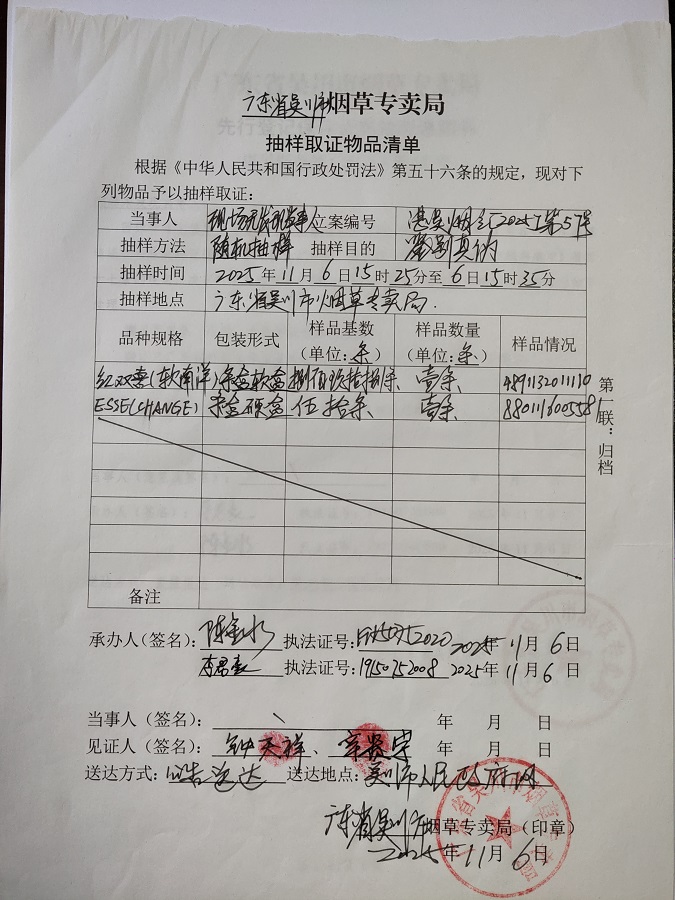 广东省吴川市烟草专卖局
抽样取证物品清单
根据《中华人民共和国行政处罚法》第五十六条的规定，现对下
列物品予以抽样取证：
当事人 现场无法确认当事人 立案编号 湛吴烟立[2025]第57号
抽样方法 随机抽样 抽样目的 鉴别真伪
抽样时间 2025年11月6日15时25分至6日15时35分
抽样地点 广东省吴川市烟草专卖局.
品种规格 包装形式 样品基数（单位：条） 样品数量（单位：条） 样品情况
红双喜(软南洋) 条盒软盒 捌佰玖拾捌条 壹条 4891132011110
ESSE(CHANGE) 条盒硬盒 伍拾条 壹条 8801116005581
第一联：归档
备注
承办人（签名）：陈 执法证号：19150752020 2025年11月6日
李君 执法证号：19150752008 2025年11月6日
当事人（签名）： 年 月 日
见证人（签名）：钟天祥、 年 月 日
送达方式：公告送达 送达地点：吴川市人民政府网
广东省吴川市烟草专卖局（印章）
2025年11月6日